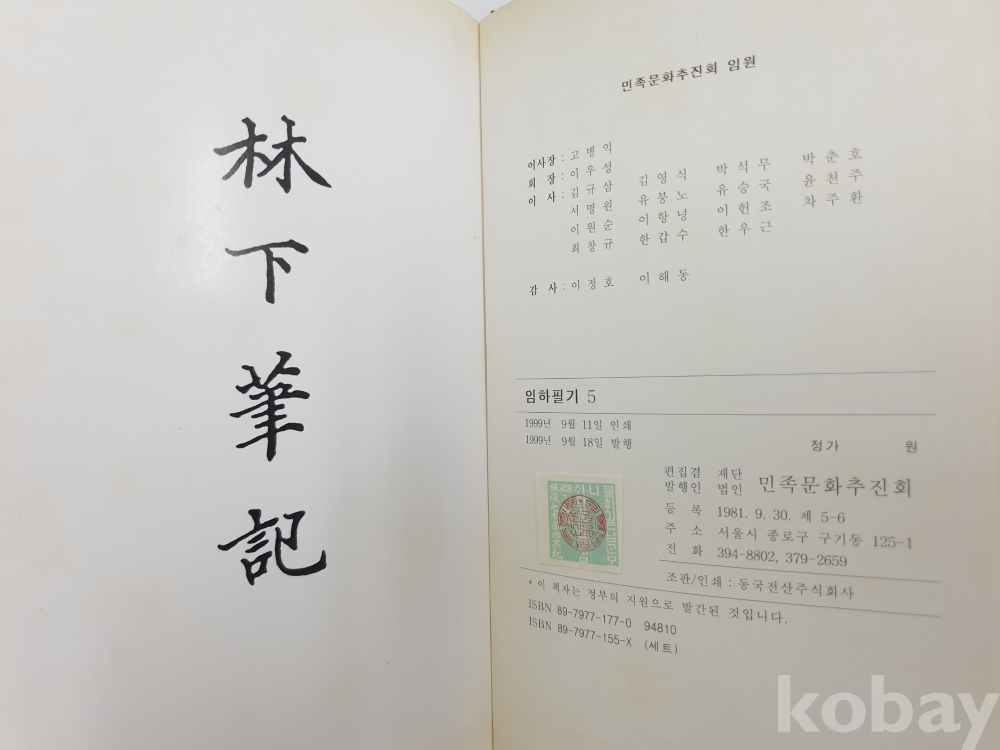 林
下
筆
記
민족문화추진회 임원
이사장 : 고병익
회 장 : 이우성
이 사 : 김규삼 김영식 박석무 박춘호
서명원 유봉노 유승국 윤천주
이원순 이항녕 이헌조 차주환
최창규 한갑수 한우근
감 사 : 이정호 이해동
임하필기 5
1999년 9월 11일 인쇄
1999년 9월 18일 발행
정가 원
편집겸 재단
발행인 법인 민족문화추진회
등 록 1981. 9. 30. 제 5-6
주 소 서울시 종로구 구기동 125-1
전 화 394-8802, 379-2659
조판/인쇄 : 동국전산주식회사
* 이 책자는 정부의 지원으로 발간된 것입니다.
ISBN 89-7977-177-0 94810
ISBN 89-7977-155-X (세트)
kobay